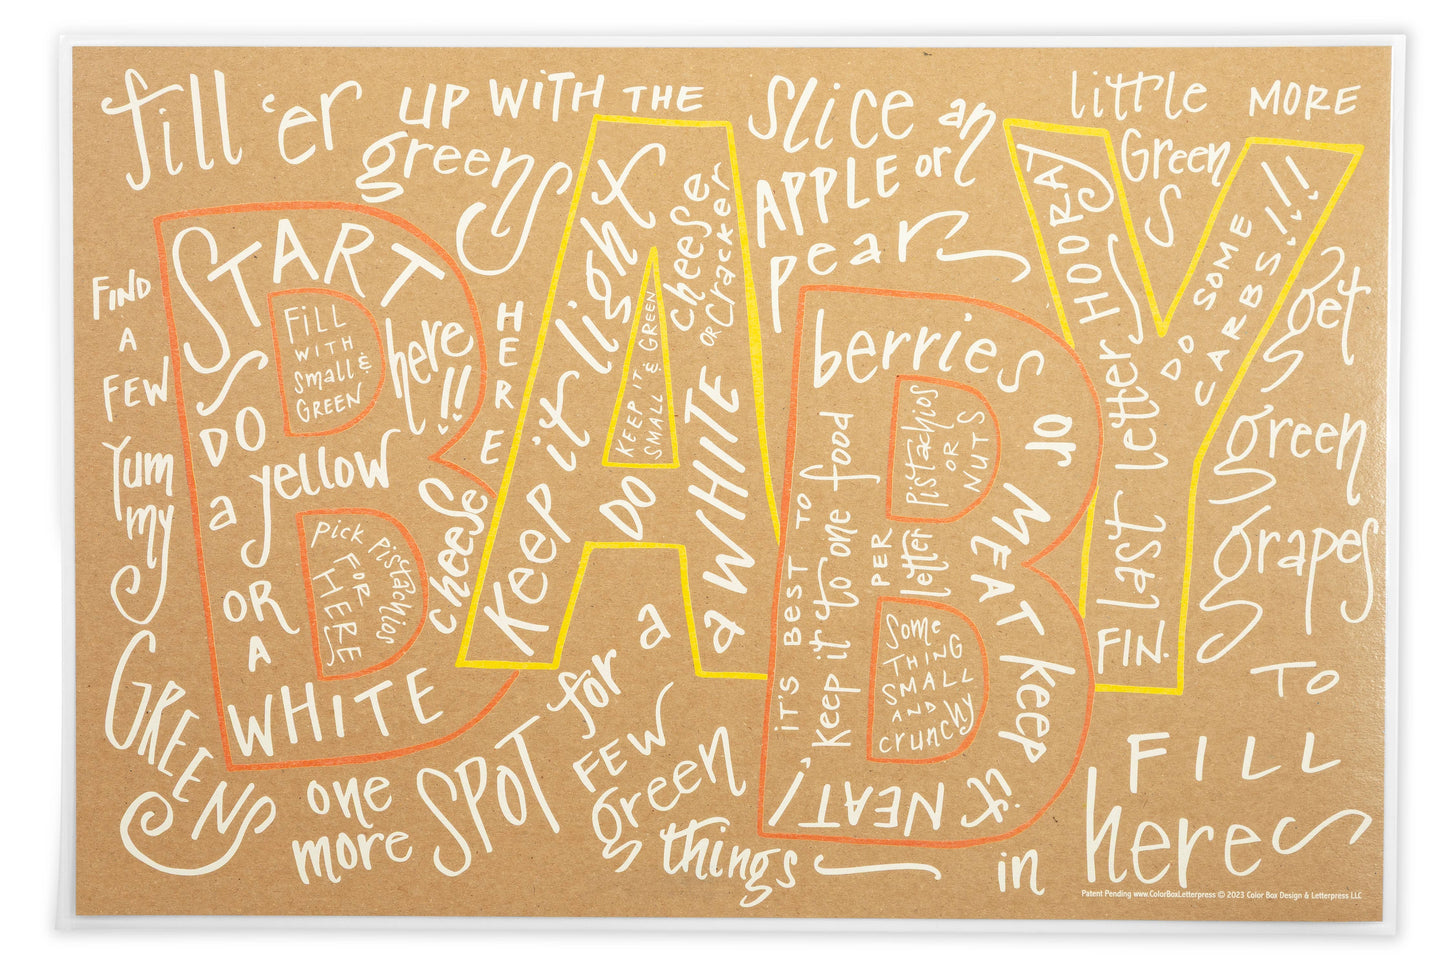 fill 'er up with the
greens here
Slice an
APPLE or
pear
little MORE
Greens
FIND
A
FEW
Yum
my
GREENS
START
here!!
DO
a yellow
OR
A
WHITE
cheese
Fill
WITH
Small &
GREEN
pick pistachios
FOR
HERE
Keep it light
DO a WHITE
cheese
OR cracker
KEEP IT
SMALL & GREEN
berries or MEAT keep it NEAT!
IT'S BEST TO
keep it to one food
PER
letter
Pistachios
OR
NUTS
Some
THING
SMALL
AND
crunchy
HOORAY
Last Letter
DO SOME
CARBS!!!
FIN.
one
more SPOT for a
FEW
green
things
get
green
grapes
TO
FILL
in here
Patent Pending www.ColorBoxLetterpress © 2023 Color Box Design & Letterpress LLC